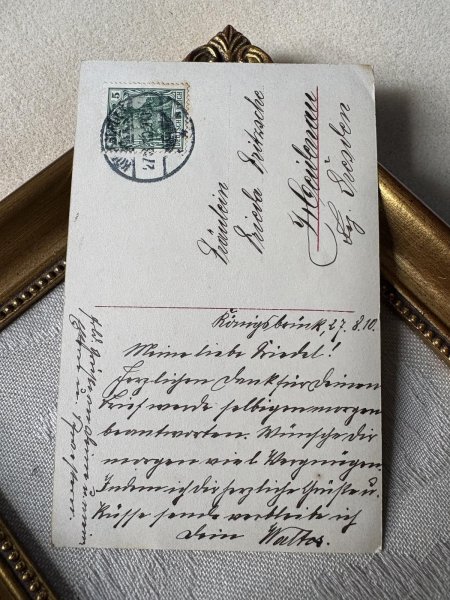 5
Fräulein
Frieda Fritzsche
Bez. Dresden
Königsbrück, 27.8.10.
Meine liebe Friedel!
Herzlichen Dank für Deinen
Brief werde selbigen morgen
beantworten. Wünsche dir
morgen viel Vergnügen.
Indem ich dir herzliche Grüße u.
Küsse sende verbleibe ich
dein Walter.